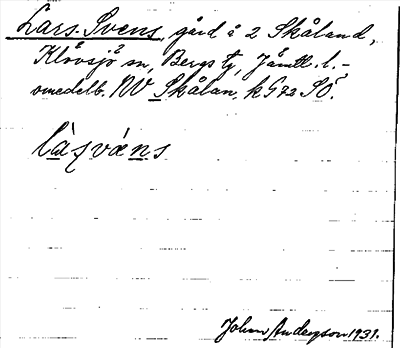 Lars-Svens, gård å 2 Skåland,
Klövsjö sn, Bergs tg, Jämtl. l. -
omedelb. NV Skålan, k G72 SÖ.
làsvǽns
Johan Anderson 1931.